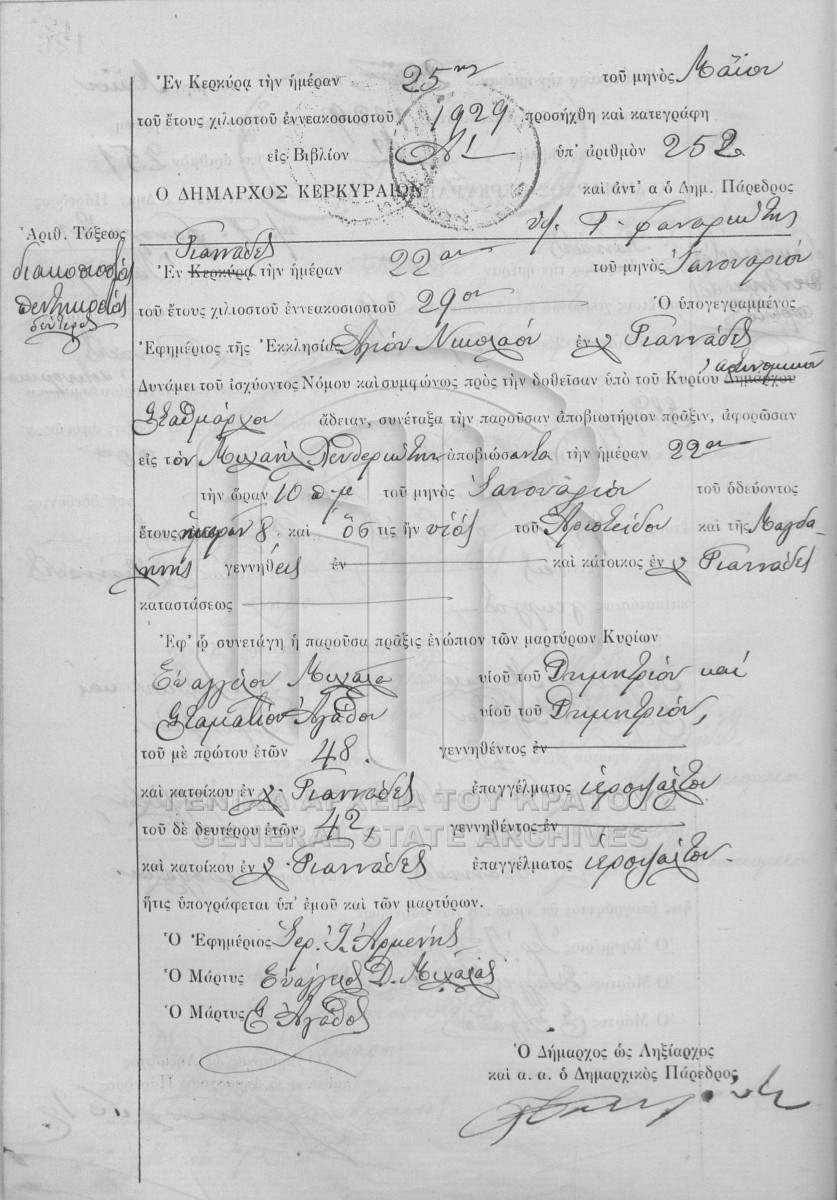 Ἐν Κερκύρᾳ τὴν ἡμέραν 25ην τοῦ μηνὸς Μαΐου
τοῦ ἔτους χιλιοστοῦ ἐννεακοσιοστοῦ 1929 προσήχθη καὶ κατεγράφη
εἰς Βιβλίον ὑπ' ἀριθμὸν 252
Ὁ ΔΗΜΑΡΧΟΣ ΚΕΡΚΥΡΑΙΩΝ καὶ ἀντ' α ὁ Δημ. Πάρεδρος
Ἀριθ. Τάξεως
Γιαννάδες
Ἐν Κερκύρᾳ τὴν ἡμέραν 22αν τοῦ μηνὸς Ἰανουαρίου
τοῦ ἔτους χιλιοστοῦ ἐννεακοσιοστοῦ 29ου Ὁ ὑπογεγραμμένος
Ἐφημέριος τῆς Ἐκκλησίας Ἁγίου Νικολάου ἐν Γιαννάδες
Δυνάμει τοῦ ἰσχύοντος Νόμου καὶ συμφώνως πρὸς τὴν δοθεῖσαν ὑπὸ τοῦ Κυρίου Δημάρχου ἀστυνομικοῦ
Σταθμάρχου ἄδειαν, συνέταξα τὴν παροῦσαν ἀποβιωτήριον πρᾶξιν, ἀφορῶσαν
εἰς τὸν Μιχαὴλ ἀποβιώσαντα τὴν ἡμέραν 22αν
τὴν ὥραν 10 π.μ τοῦ μηνὸς Ἰανουαρίου τοῦ ὁδεύοντος
ἔτους ἡμερῶν 8 καὶ ὅστις ἦν υἱὸς τοῦ Ἀριστείδου καὶ τῆς Μαγδα
ληνῆς γεννηθεὶς ἐν καὶ κάτοικος ἐν Γιαννάδες
καταστάσεως
Ἐφ' ᾧ συνετάγη ἡ παροῦσα πρᾶξις ἐνώπιον τῶν μαρτύρων Κυρίων
Εὐαγγέλου Μιχαλᾶ υἱοῦ τοῦ Δημητρίου καὶ
Σταματίου Ἀγάθου υἱοῦ τοῦ Δημητρίου,
τοῦ μὲ πρώτου ἐτῶν 48. γεννηθέντος ἐν
καὶ κατοίκου ἐν Γιαννάδες ἐπαγγέλματος ἱεροψάλτου
ΓΕΝΙΚΑ ΑΡΧΕΙΑ ΤΟΥ ΚΡΑΤΟΥΣ
τοῦ δὲ δευτέρου ἐτῶν 42, γεννηθέντος ἐν
GENERAL STATE ARCHIVES
καὶ κατοίκου ἐν Γιαννάδες ἐπαγγέλματος ἱεροψάλτου.
ἥτις ὑπογράφεται ὑπ' ἐμοῦ καὶ τῶν μαρτύρων.
Ὁ Ἐφημέριος Ἱερ. Ἰ. Ἀρμένης
Ὁ Μάρτυς Εὐάγγελος Δ. Μιχαλᾶς
Ὁ Μάρτυς Σ Ἀγάθος
Ὁ Δήμαρχος ὡς Ληξίαρχος
καὶ α. α. ὁ Δημαρχικὸς Πάρεδρος